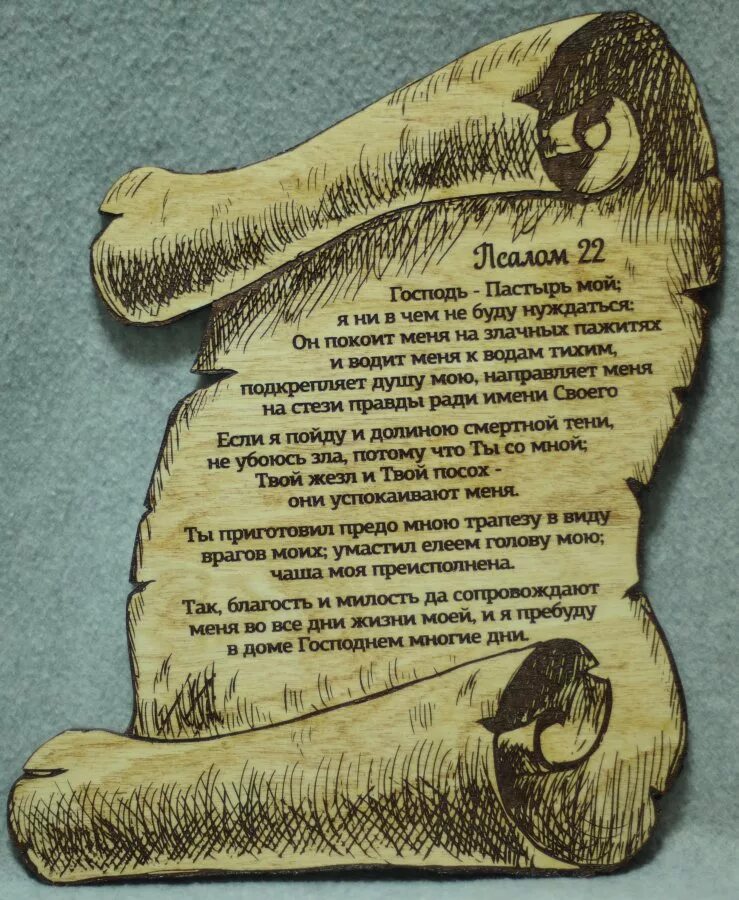 Псалом 22
Господь - Пастырь мой;
я ни в чем не буду нуждаться:
Он покоит меня на злачных пажитях
и водит меня к водам тихим,
подкрепляет душу мою, направляет меня
на стези правды ради имени Своего
Если я пойду и долиною смертной тени,
не убоюсь зла, потому что Ты со мной;
Твой жезл и Твой посох -
они успокаивают меня.
Ты приготовил предо мною трапезу в виду
врагов моих; умастил елеем голову мою;
чаша моя преисполнена.
Так, благость и милость да сопровождают
меня во все дни жизни моей, и я пребуду
в доме Господнем многие дни.